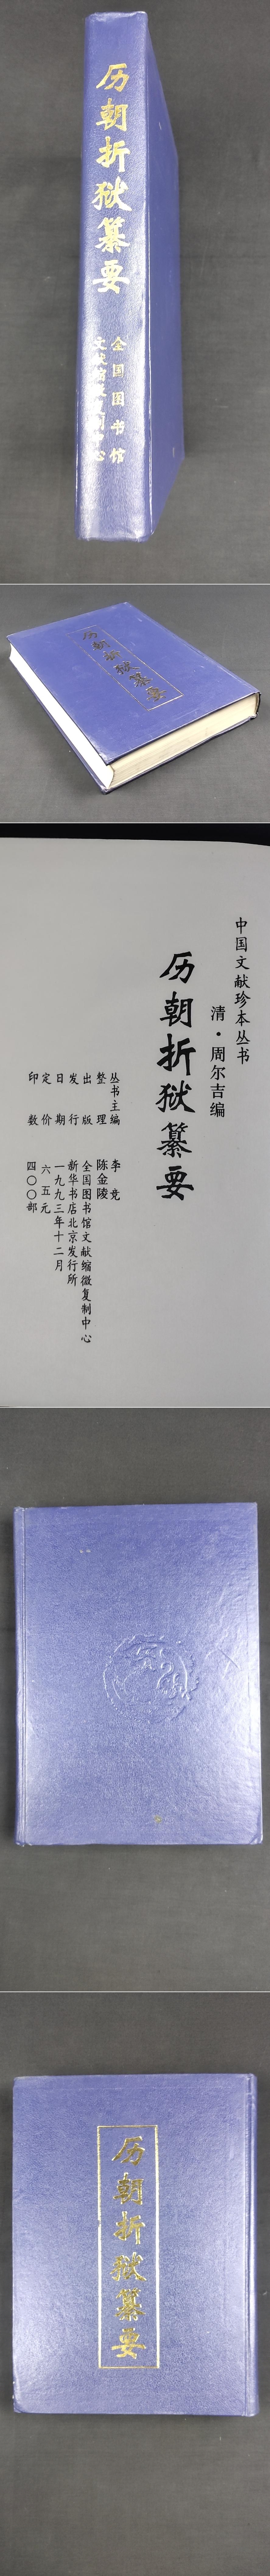 历朝折狱纂要
全国图书馆
文献缩微复制中心
历朝折狱纂要
中国文献珍本丛书
清·周尔吉编
历朝折狱纂要
丛书主编 李竞
整理 陈金陵
出版 全国图书馆文献缩微复制中心
发行 新华书店北京发行所
日期 一九九三年十二月
定价 六五元
印数 四〇〇部
历朝折狱纂要